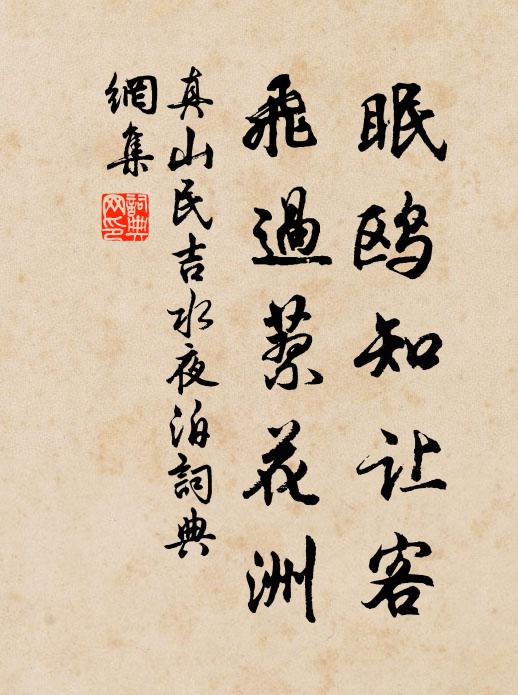 眠鸥知让客
飛過蓼花洲
真山民吉水夜泊詞典
網集
詞典
网印